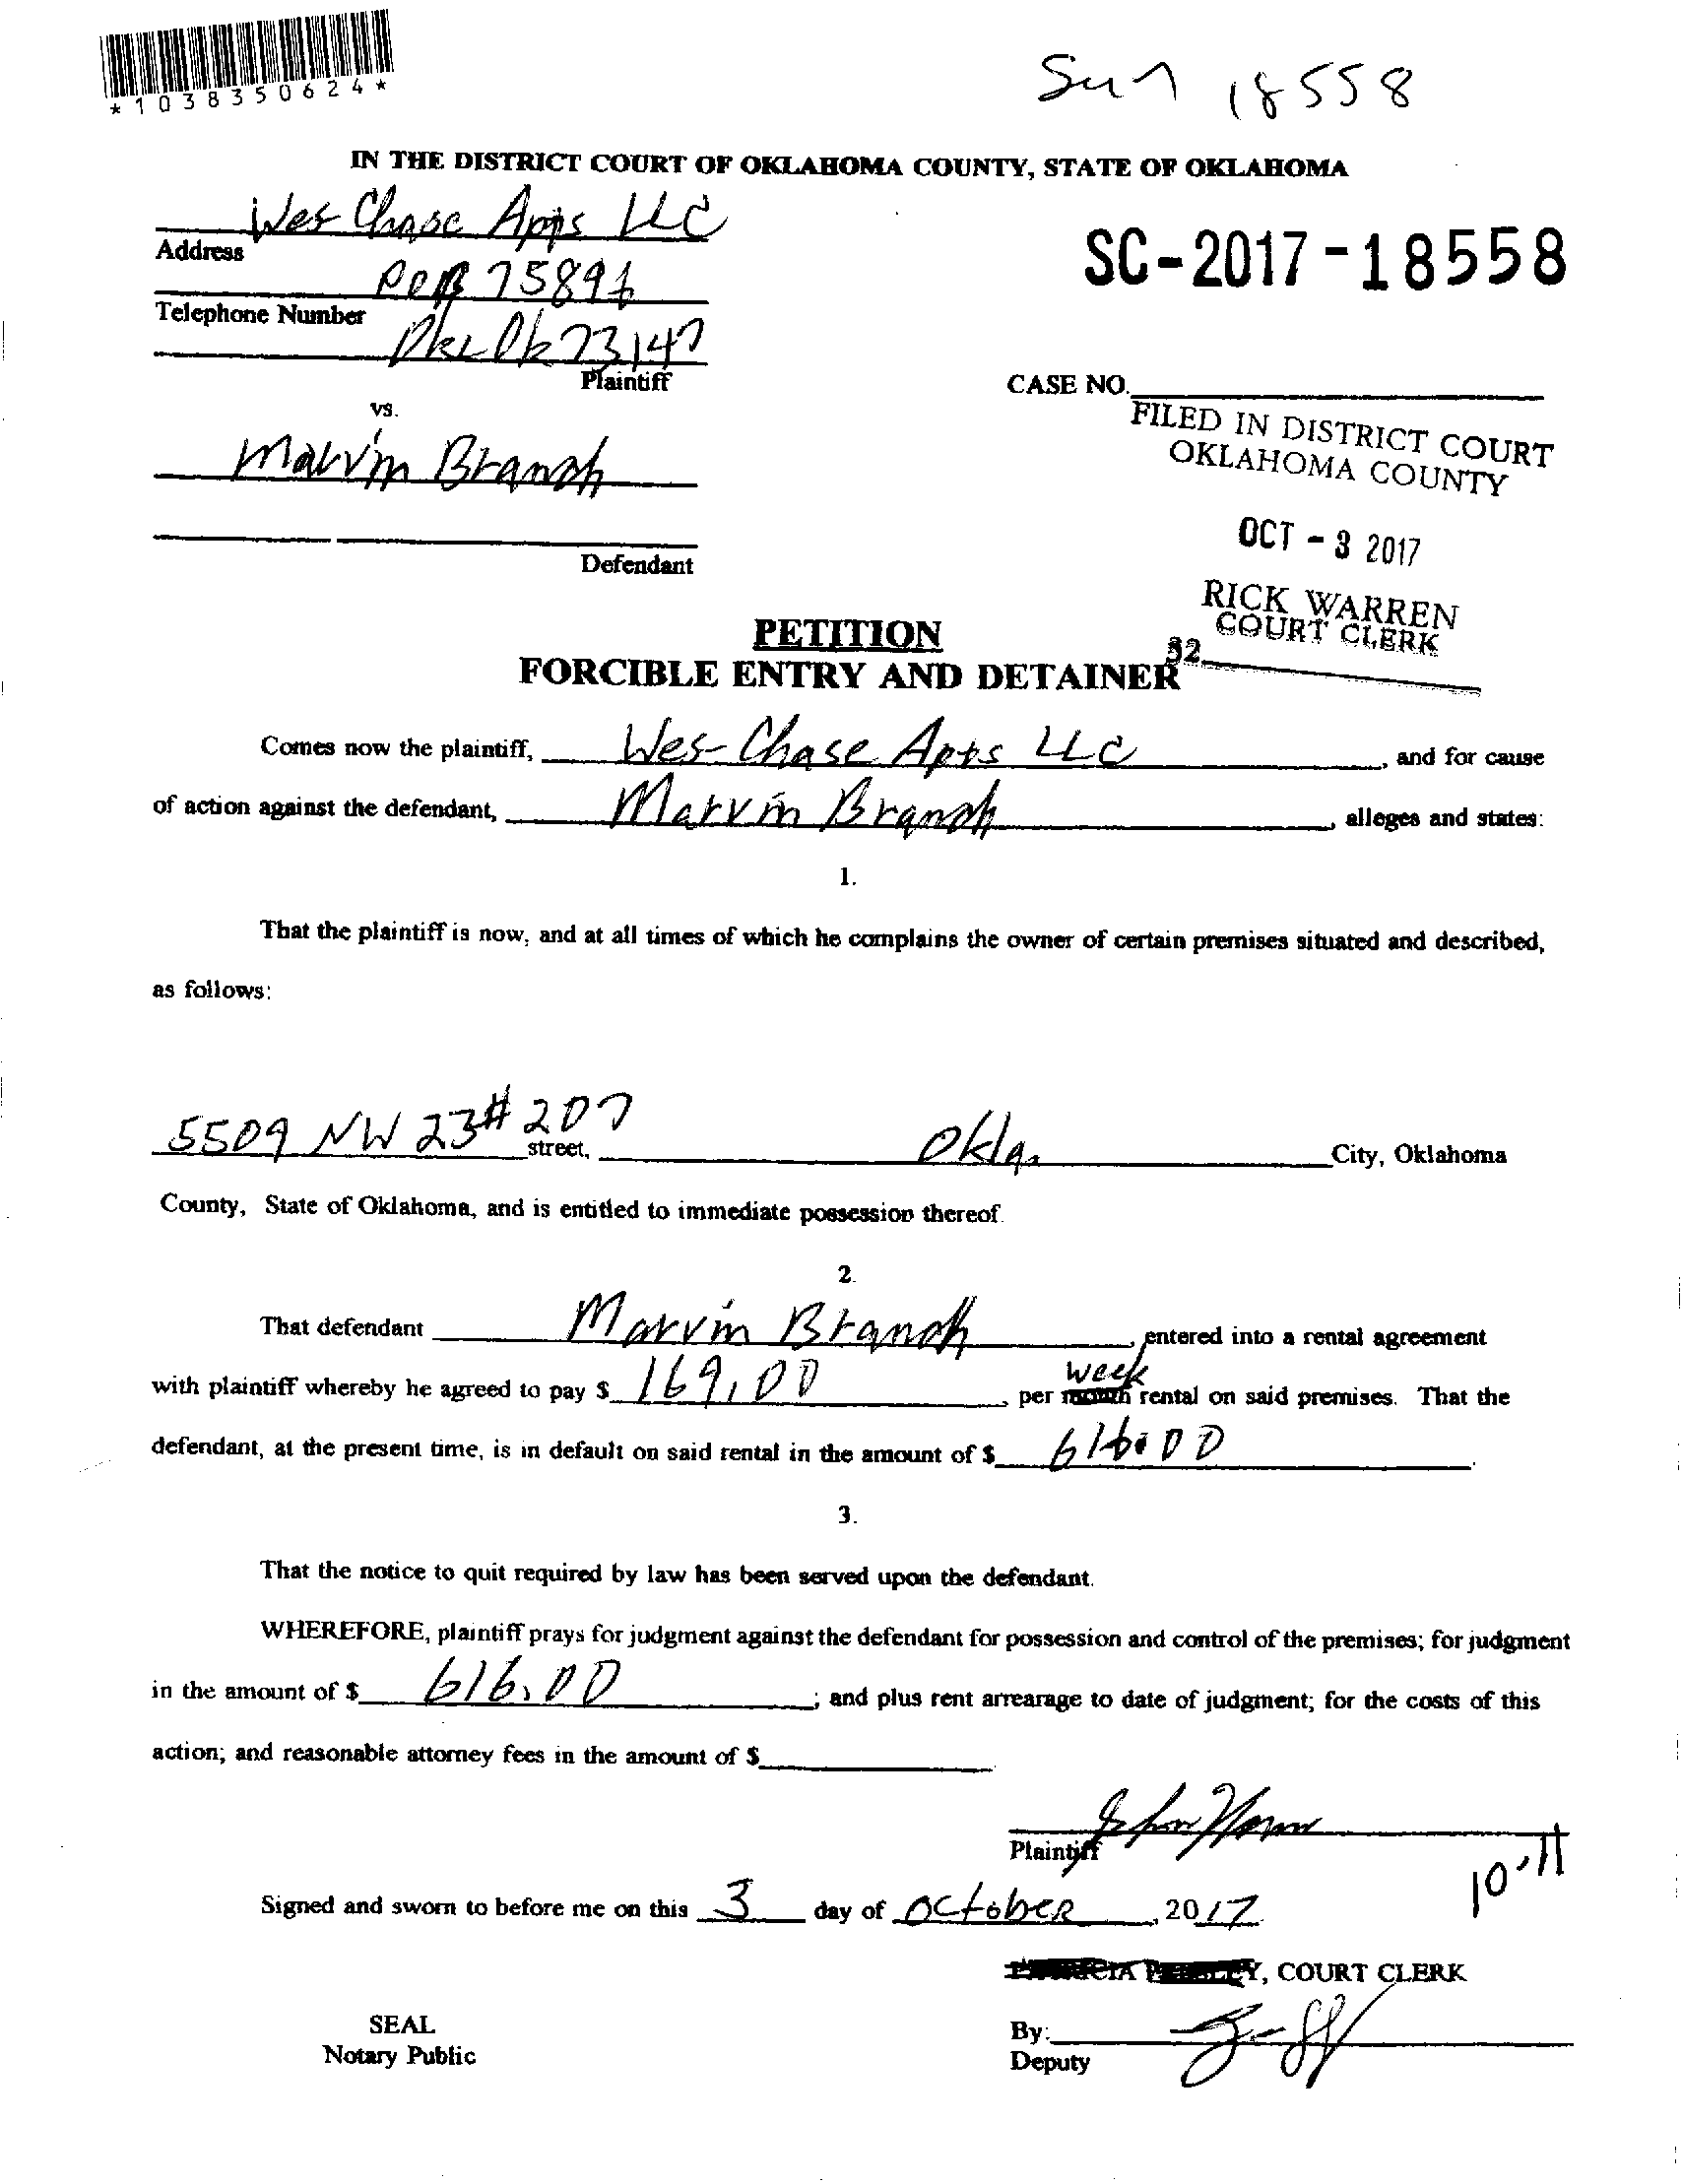 *1038350624*
18558
IN THE DISTRICT COURT OF OKLAHOMA COUNTY, STATE OF OKLAHOMA
Wes Chase Apts LLC
Address
POB 75894
SC-2017-18558
Telephone Number
Okc Ok 73147
Plaintiff
CASE NO.
vs.
FILED IN DISTRICT COURT
OKLAHOMA COUNTY
Marvin Branch
OCT - 3 2017
Defendant
RICK WARREN
COURT CLERK
32
PETITION
FORCIBLE ENTRY AND DETAINER
Comes now the plaintiff, Wes-Chase Apts LLC, and for cause
of action against the defendant, Marvin Branch, alleges and states:
1.
That the plaintiff is now, and at all times of which he complains the owner of certain premises situated and described,
as follows:
5509 NW 23 # 207 street, Okla. City, Oklahoma
County, State of Oklahoma, and is entitled to immediate possession thereof.
2.
That defendant Marvin Branch, entered into a rental agreement
week
with plaintiff whereby he agreed to pay $ 169.00, per month rental on said premises. That the
defendant, at the present time, is in default on said rental in the amount of $ 616.00.
3.
That the notice to quit required by law has been served upon the defendant.
WHEREFORE, plaintiff prays for judgment against the defendant for possession and control of the premises; for judgment
in the amount of $ 616.00; and plus rent arrearage to date of judgment; for the costs of this
action; and reasonable attorney fees in the amount of $
Plaintiff
10-11
Signed and sworn to before me on this 3 day of October, 2017.
COURT CLERK
SEAL
By:
Notary Public
Deputy